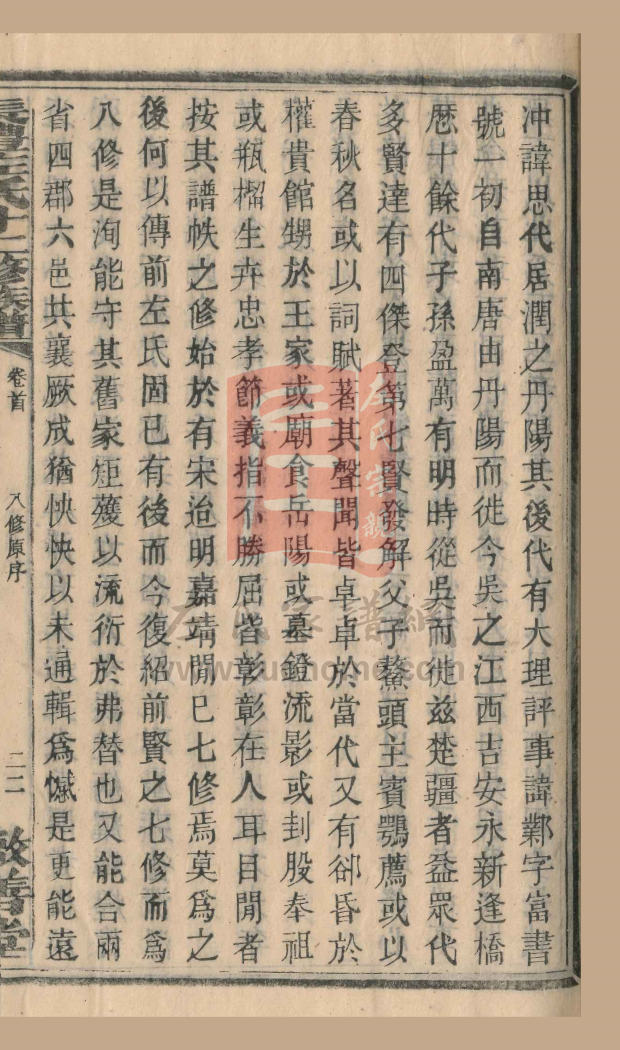 冲諱思代居潤之丹陽其後代有大理評事諱鄴字富書
號一初自南唐由丹陽而徙今吳之江西吉安永新逢橋
厯十餘代子孫盈萬有明時從吳而徙兹楚疆者益眾代
多賢達有四傑登第七賢發解父子鰲頭主賓鶚薦或以
春秋名或以詞賦著其聲聞皆卓卓於當代又有郤昏於
權貴館甥於王家或廟食岳陽或墓鐙流影或刲股奉祖
或瓶櫂生卉忠孝節義指不勝屈皆彰彰在人耳目閒者
按其譜帙之修始於有宋迨明嘉靖閒已七修焉莫爲之
後何以傳前左氏固已有後而今復紹前賢之七修而爲
八修是洵能守其舊家矩矱以流衍於弗替也又能合兩
省四郡六邑共襄厥成猶怏怏以未通輯爲慽是更能遠
左氏十二修族譜
卷首
八修原序
二二
敦善堂
左氏宗親
左氏家譜網